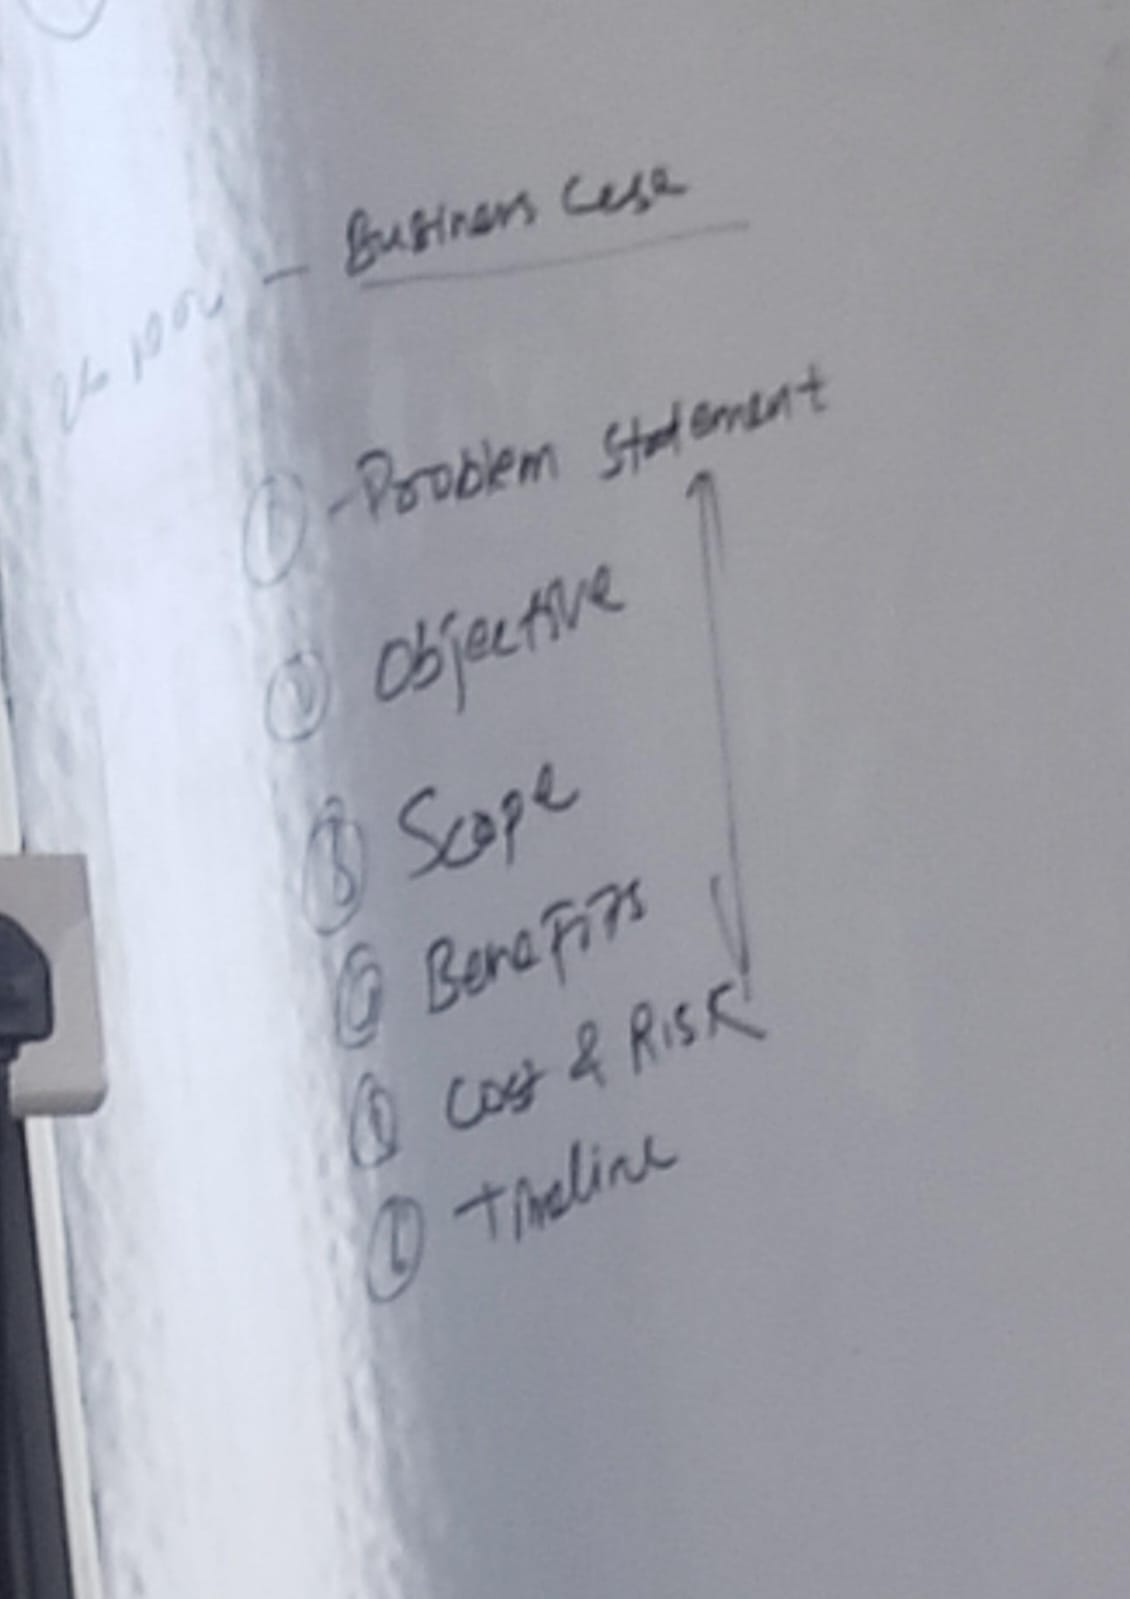 - Business Case
① - Problem Statement
② Objective
③ Scope
④ Benefits
⑤ Cost & Risk
⑥ Timeline